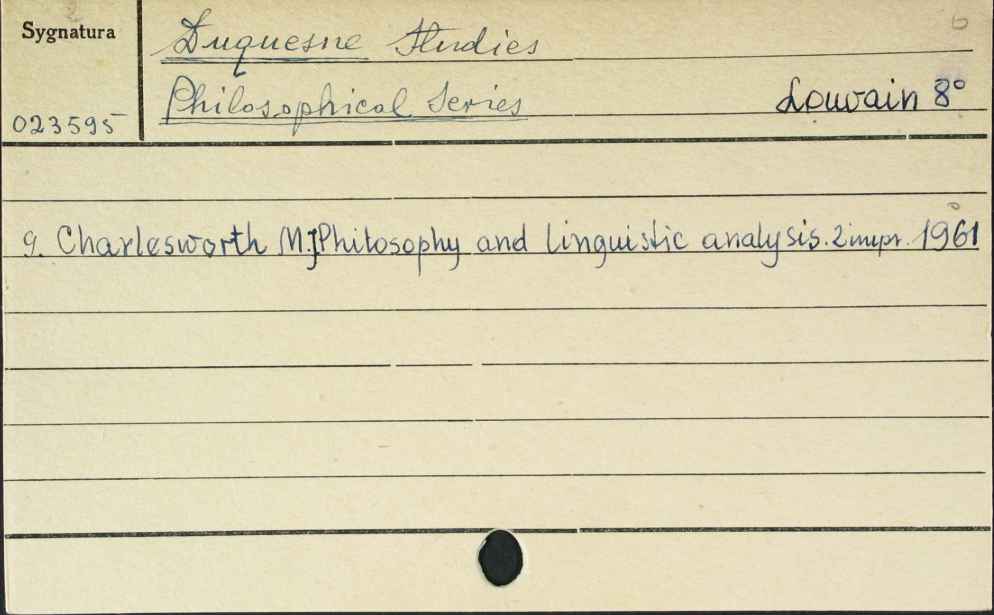 Sygnatura
Duquesne Studies
Philosophical Series
Louvain 8°
023595
9. Charlesworth M.J. Philosophy and linguistic analysis. 2 impr. 1961